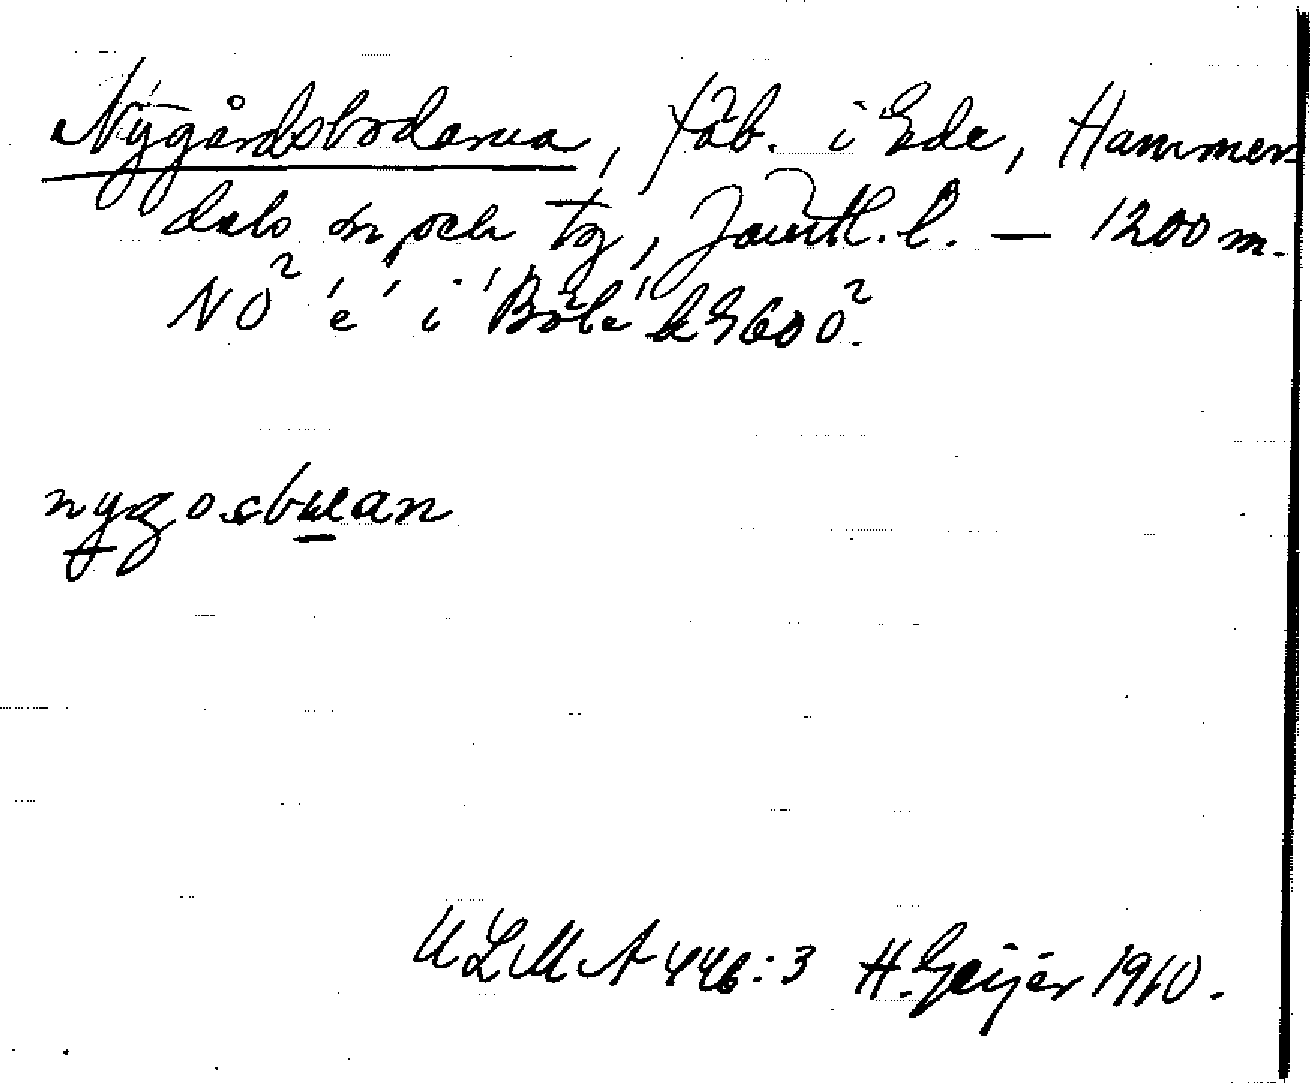 Nygårdsbodarna, fäb. i Ede, Hammer-
dals sn och tg, Jämtl. l. — 1200 m.
NO² 'e' i 'Böle' k 9600².
nygosbuan
ULMA 446:3 H. Geijer 1910.